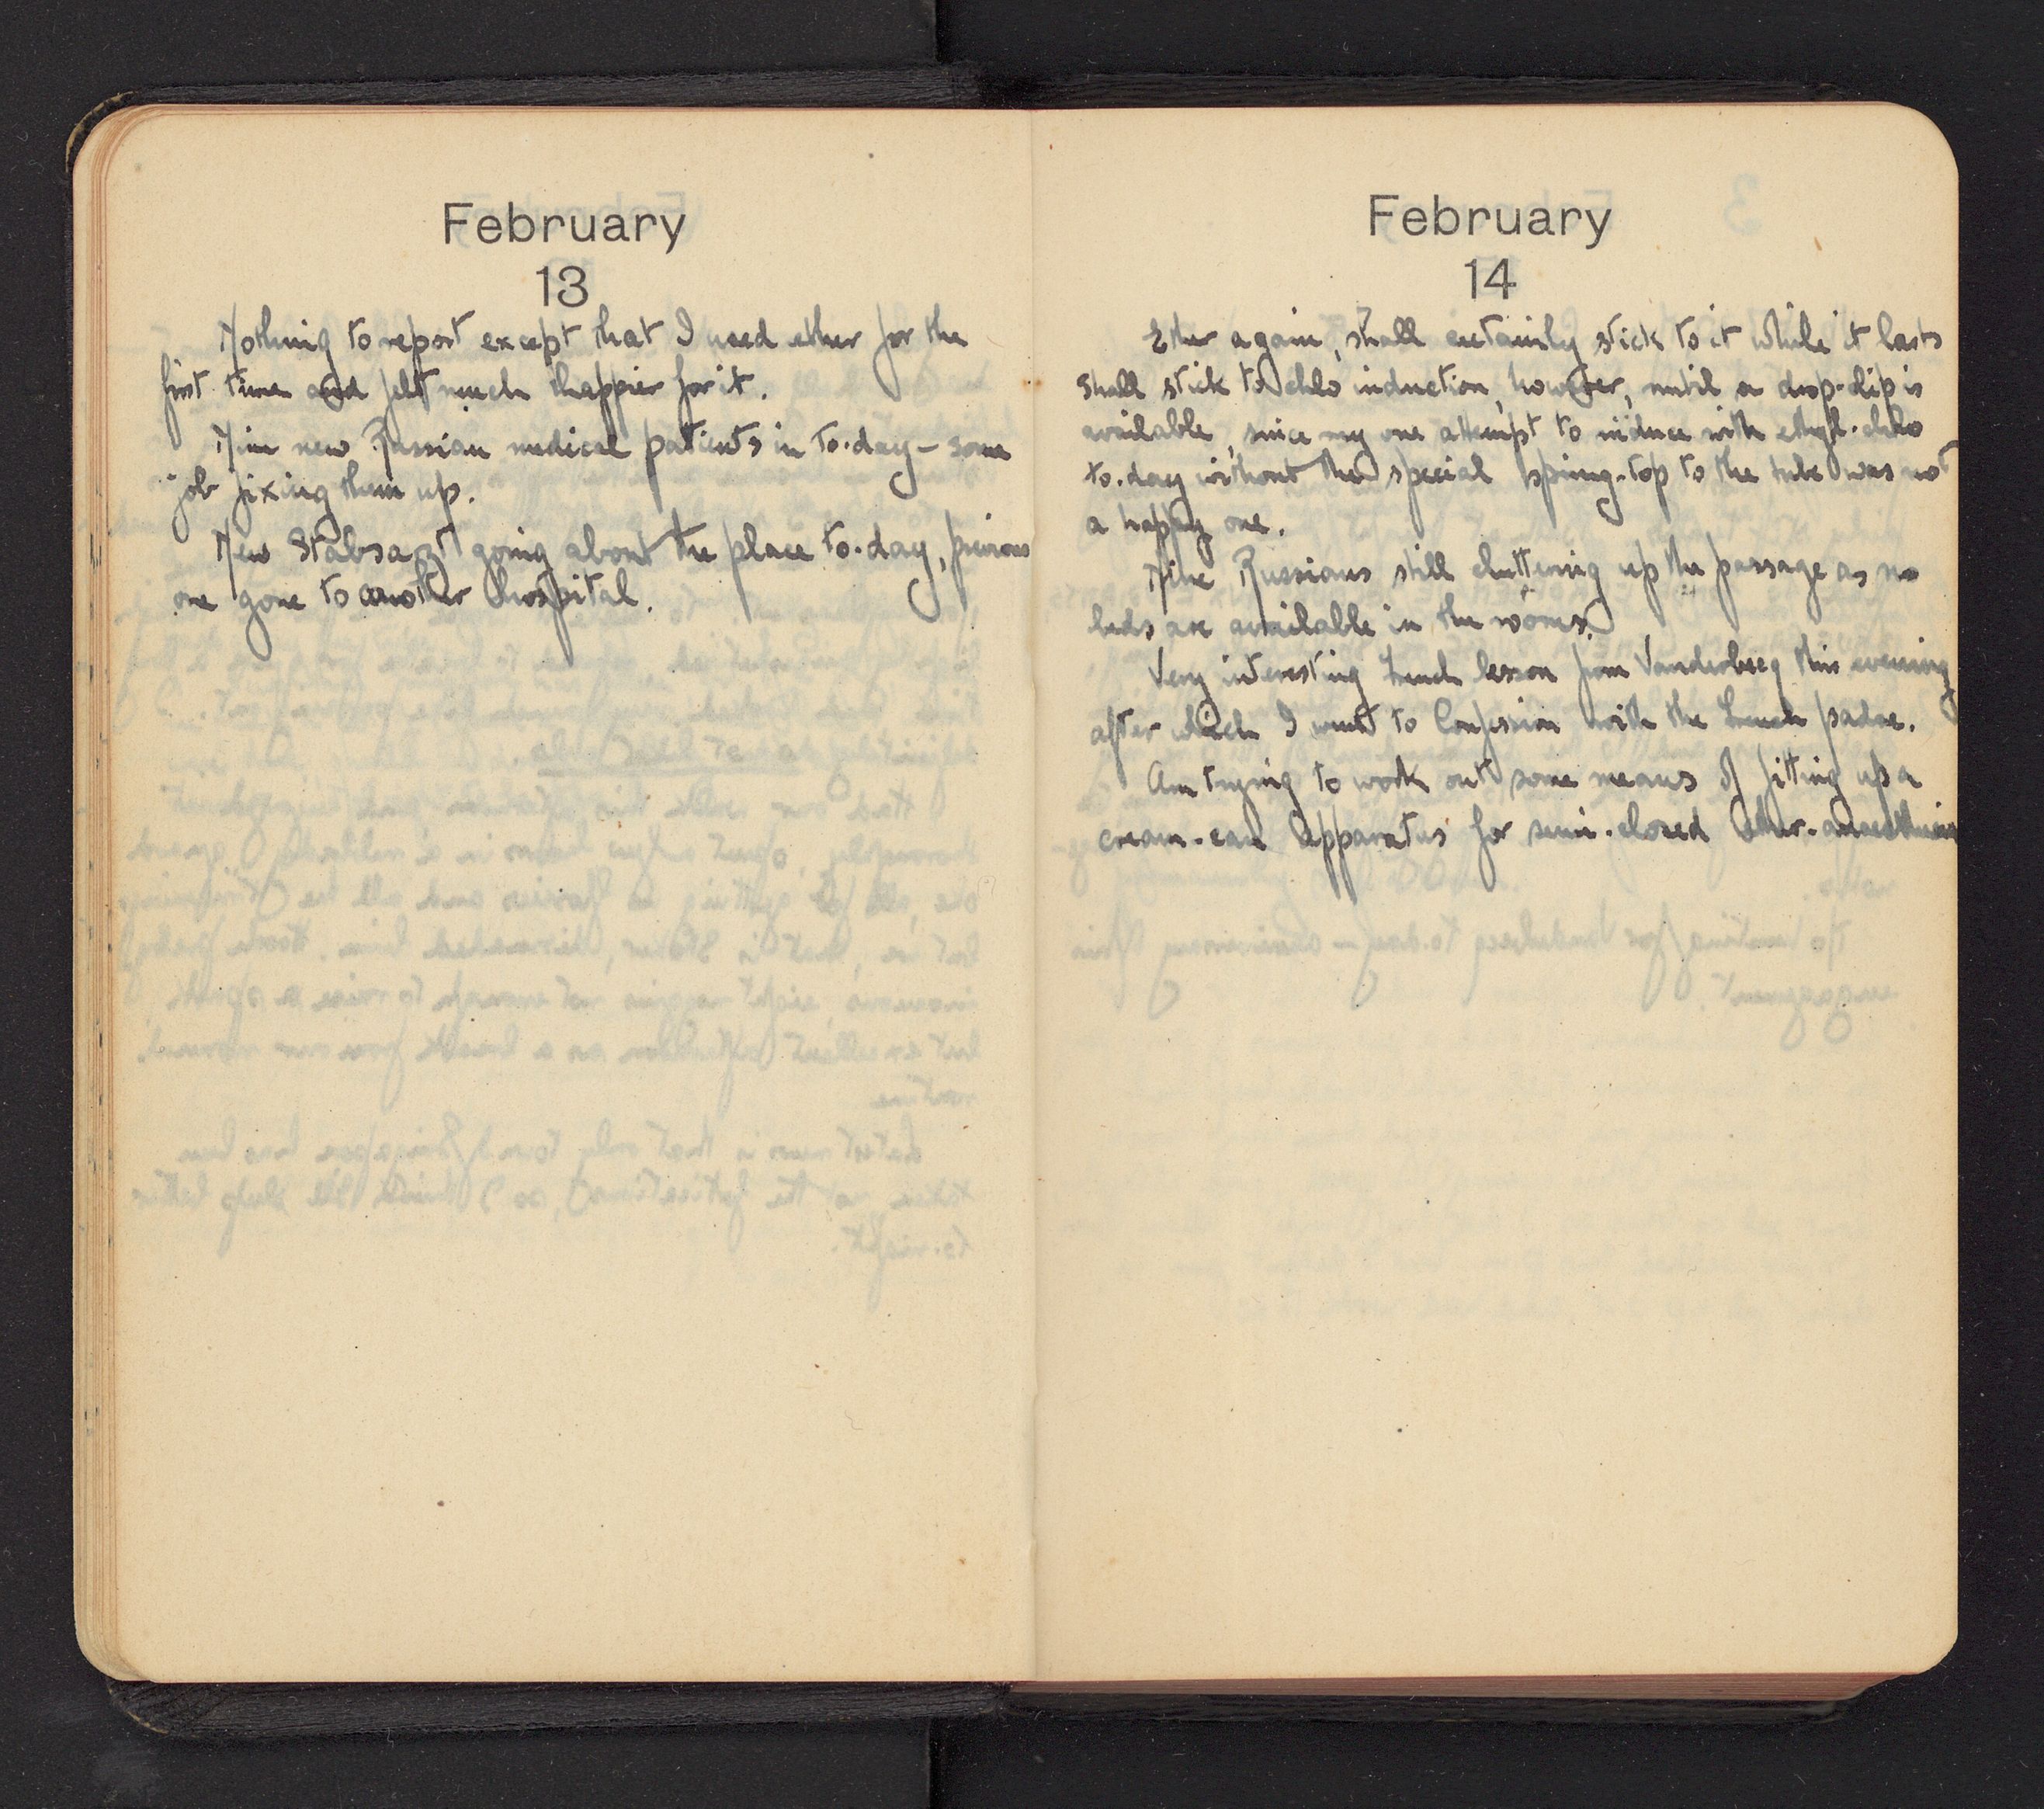 February
13
Nothing to report except that I used ether for the
first time and felt much happier for it.
Nine new Russian medical patients in to-day – some
job fixing them up.
New Stabsarzt going about the place to-day, previous
one gone to another hospital.
February
14
Ether again, shall certainly stick to it while it lasts
Shall stick to chlo induction, however, until a drop-clip is
available, since my one attempt to induce with ethyl-chlo
to-day without the special spring-top to the tube was not
a happy one.
Nine Russians still cluttering up the passage as no
beds are available in the rooms.
Very interesting French lesson from Vanderberg this evening
after which I went to Confession with the French padre.
Am trying to work out some means of fitting up a
cream-can apparatus for semi-closed ether-anaesthesia